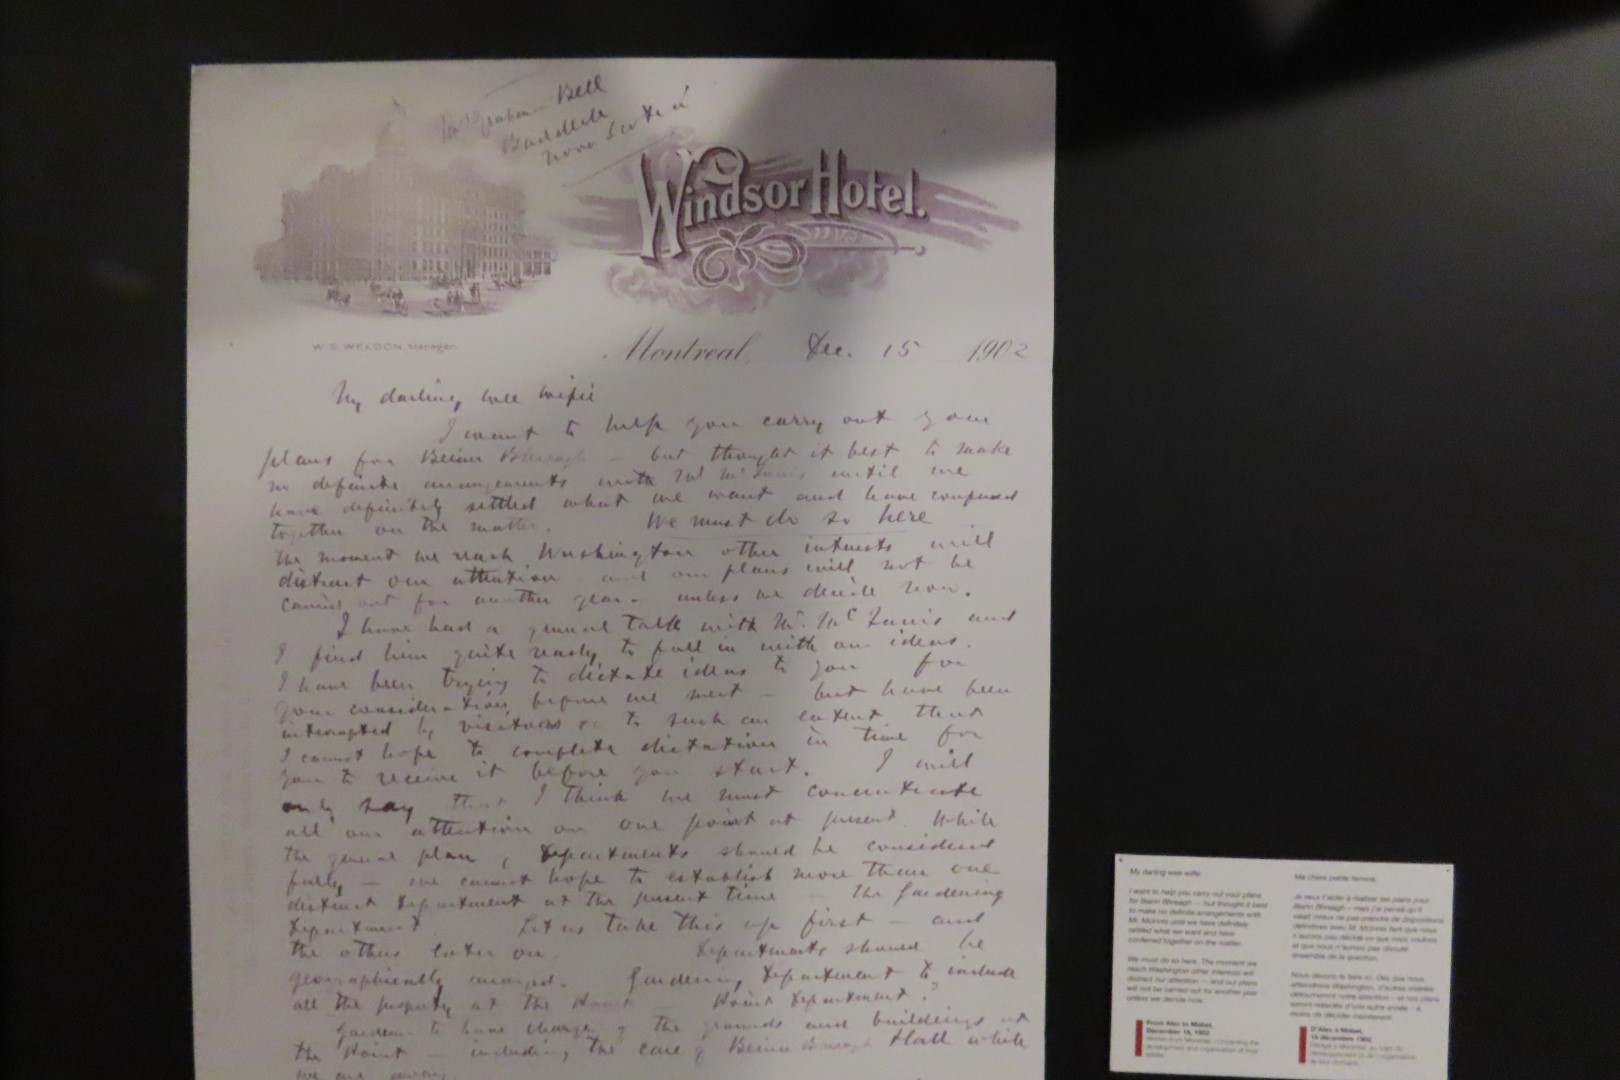 Mr Graham Bell
Baddeck
Nova Scotia
Windsor Hotel.
W. S. WELDON, Manager.
Montreal, Dec. 15 1902
My darling wee wifie
I want to help you carry out your
plans for Beinn Bhreagh — but thought it best to make
no definite arrangements with Mr McInnis until we
have definitely settled what we want and have conferred
together on the matter. We must do so here
the moment we reach Washington other interests will
distract our attention — and our plans will not be
carried out for another year — unless we decide now.
I have had a general talk with Mr. McInnis and
I find him quite ready to fall in with our ideas.
I have been trying to dictate ideas to you for
your consideration before we meet — but have been
interrupted by visitors &c to such an extent that
I cannot hope to complete dictation in time for
you to receive it before you start. I will
only say that I think we must concentrate
all our attention on one point at present. While
the general plan of Departments should be considered
fully — we cannot hope to establish more than one
distinct Department at the present time — the Gardening
Department. Let us take this up first — and
the others later on. Departments should be
geographically arranged. Gardening Department to include
all the property at the Point — Point Department?
Gardener to have charge of the grounds and buildings at
the Point — including the care of Beinn Bhreagh Hall while
we are away.
My darling wee wifie:
I want to help you carry out your plans
for Beinn Bhreagh — but thought it best
to make no definite arrangements with
Mr. McInnis until we have definitely
settled what we want and have
conferred together on the matter.
We must do so here. The moment we
reach Washington other interests will
distract our attention — and our plans
will not be carried out for another year
unless we decide now.
From Alec to Mabel,
December 15, 1902
development and organization of their
estate.
Ma chère petite femme,
Je veux t'aider à réaliser tes plans pour
Beinn Bhreagh – mais j'ai pensé qu'il
valait mieux ne pas prendre de dispositions
définitives avec M. McInnis tant que nous
n'aurons pas décidé ce que nous voulons
et que nous n'aurons pas discuté
ensemble de la question.
Nous devons le faire ici. Dès que nous
atteindrons Washington, d'autres intérêts
détourneront notre attention – et nos plans
seront retardés d'une autre année – à
moins de décider maintenant.
D'Alec à Mabel,
15 décembre 1902